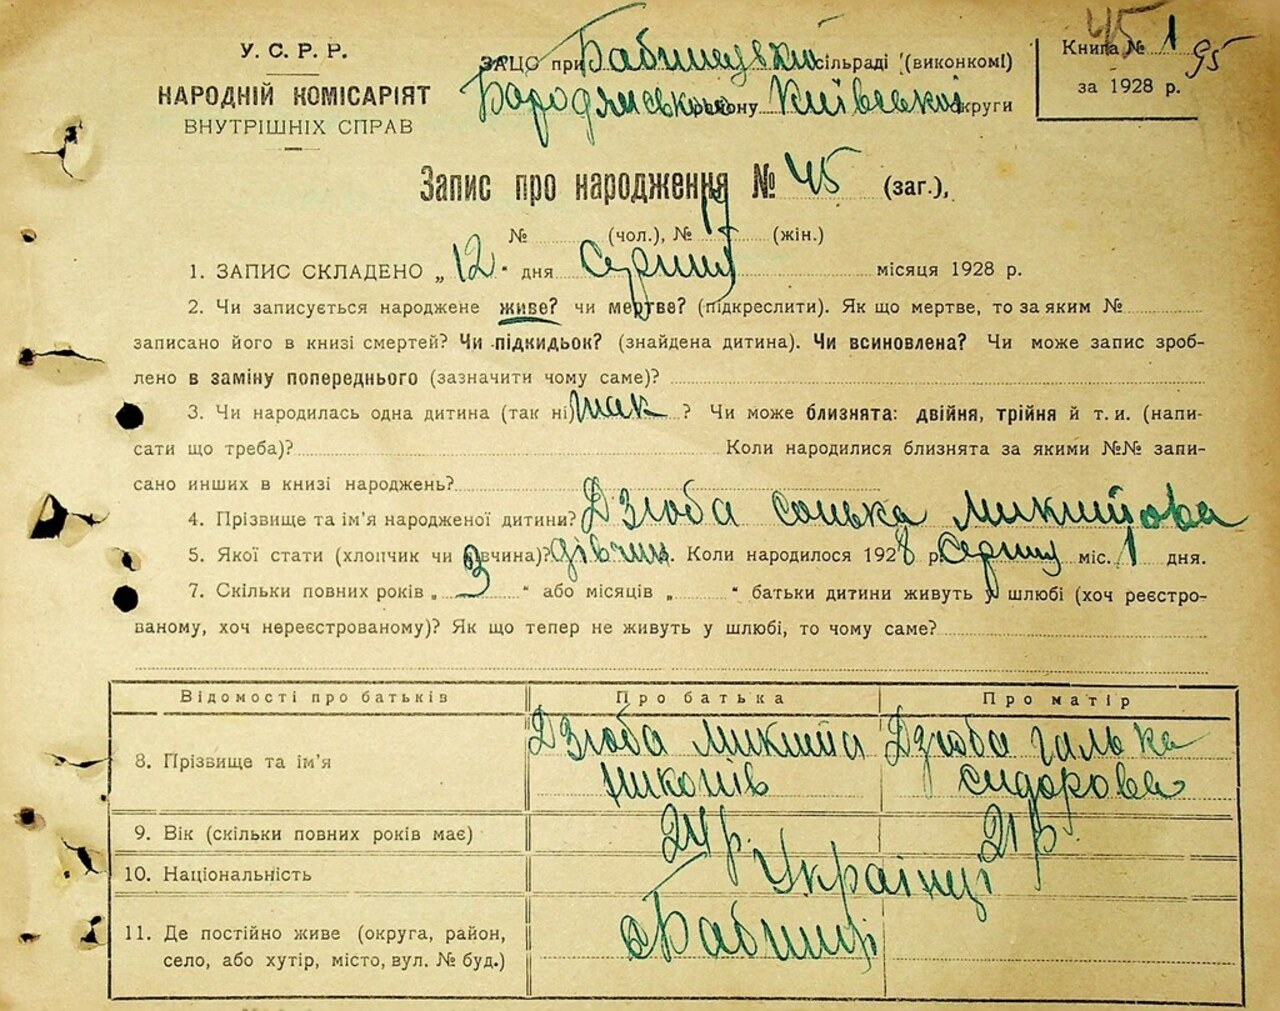 45
У. С. Р. Р.
НАРОДНІЙ КОМІСАРІЯТ
ВНУТРІШНІХ СПРАВ
ЗАЦС при Бабинецькій сільраді (виконкомі)
Бородянського району Київської округи
Книга № 1 95
за 1928 р.
Запис про народження № 45 (заг.),
№ (чол.), № 19 (жін.)
1. ЗАПИС СКЛАДЕНО „ 12 “ дня Серпня місяця 1928 р.
2. Чи записується народжене живе? чи мертве? (підкреслити). Як що мертве, то за яким №
записано його в книзі смертей? Чи підкидьок? (знайдена дитина). Чи всиновлена? Чи може запис зроб-
лено в заміну попереднього (зазначити чому саме)?
3. Чи народилась одна дитина (так ні) так ? Чи може близнята: двійня, трійня й т. и. (напи-
сати що треба)? Коли народилися близнята за якими №№ запи-
сано инших в книзі народжень?
4. Прізвище та ім'я народженої дитини? Дзюба Сонька Микитова
5. Якої стати (хлопчик чи дівчина)? дівчин. Коли народилося 1928 р. Серпня міс. 1 дня.
7. Скільки повних років „ 3 “ або місяців „ “ батьки дитини живуть у шлюбі (хоч реєстро-
ваному, хоч нереєстрованому)? Як що тепер не живуть у шлюбі, то чому саме?
Відомості про батьків Про батька Про матір
8. Прізвище та ім'я Дзюба Микита Никонів Дзюба Галька Сидорова
9. Вік (скільки повних років має) 24 р. 21 р.
10. Національність Українці
11. Де постійно живе (округа, район,
село, або хутір, місто, вул. № буд.) с. Бабинці